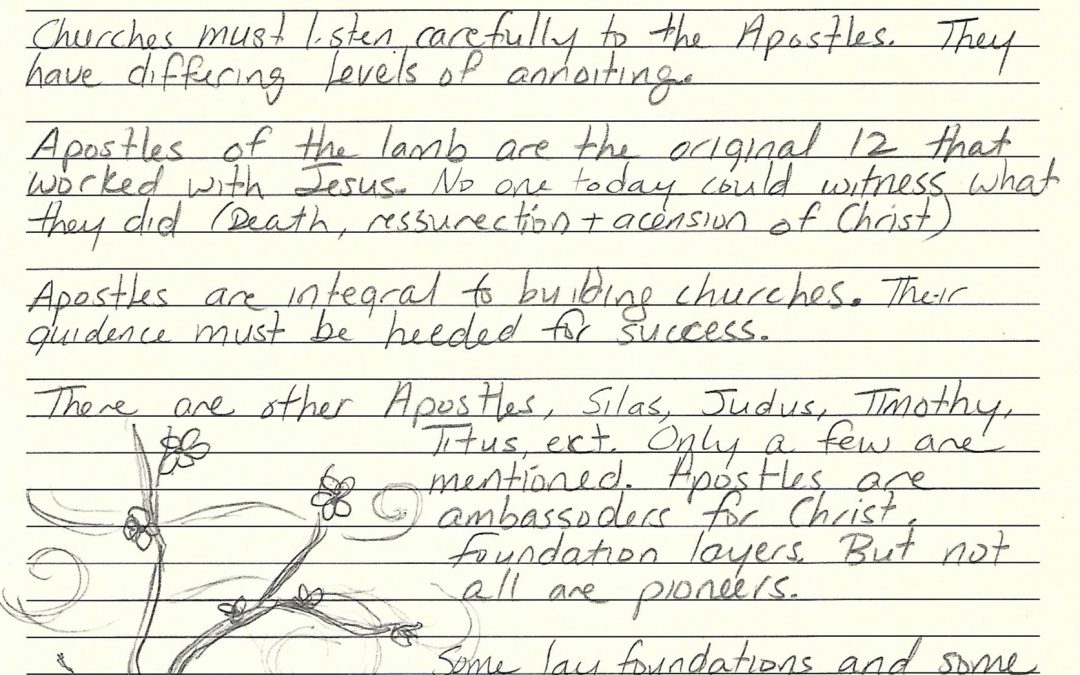 Churches must listen carefully to the Apostles. They
have differing levels of annoiting.
Apostles of the lamb are the original 12 that
worked with Jesus. No one today could witness what
they did (Death, ressurection + acension of Christ)
Apostles are integral to building churches. Their
guidence must be heeded for success.
There are other Apostles, Silas, Judus, Timothy,
Titus, ect. Only a few are
mentioned. Apostles are
ambassoders for Christ,
foundation layers. But not
all are pioneers.
Some lay foundations and some